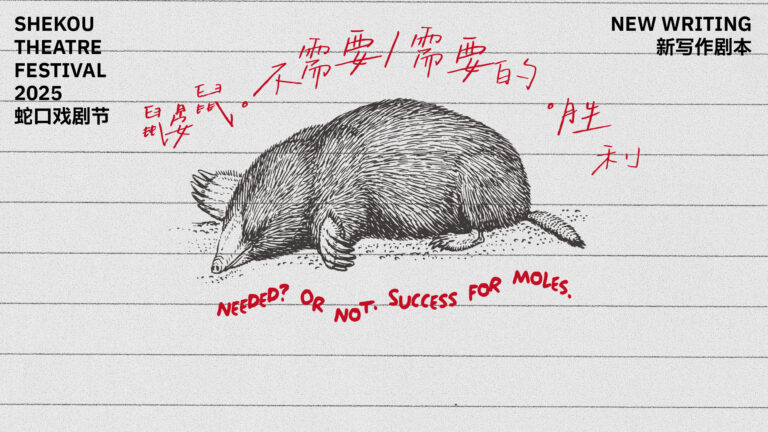 SHEKOU
THEATRE
FESTIVAL
2025
蛇口戏剧节
NEW WRITING
新写作剧本
鼹鼠。不需要/需要的。胜利
NEEDED? OR NOT. SUCCESS FOR MOLES.